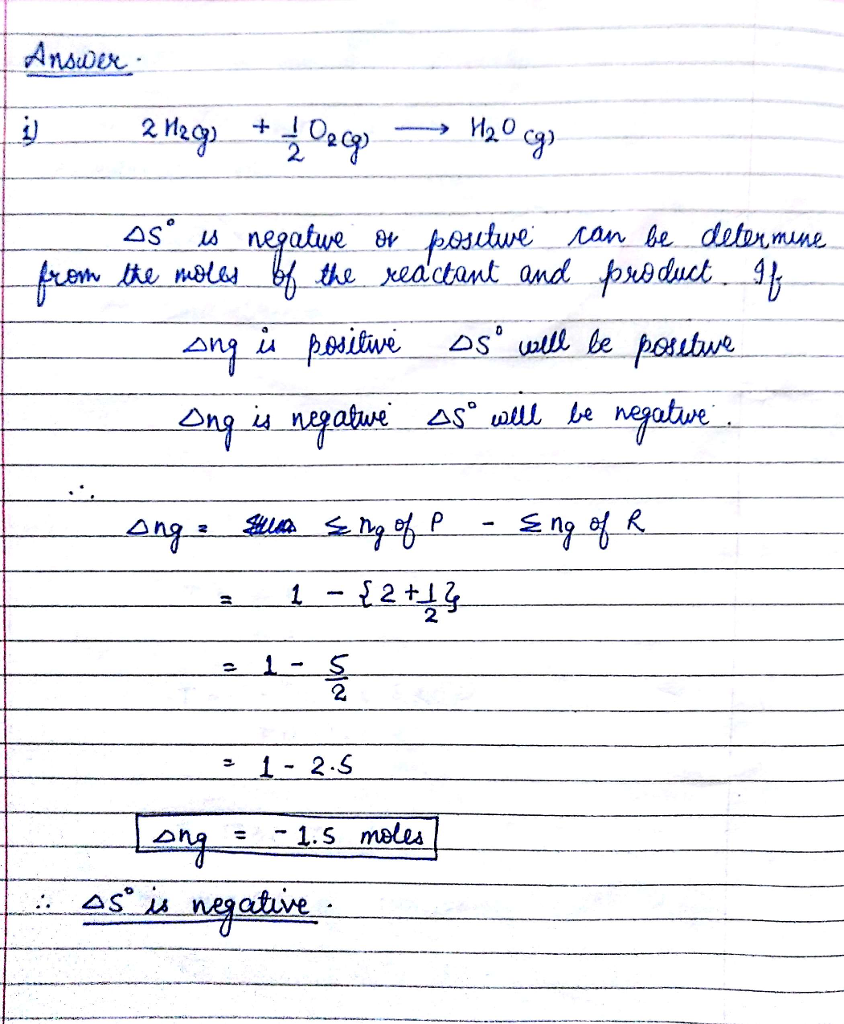 Answer.
i) 2 H2(g) + 1/2 O2(g) → H2O (g)
ΔS° is negative or positive can be determine
from the moles of the reactant and product. If
Δng is positive ΔS° will be positive
Δng is negative ΔS° will be negative.
∴
Δng = Σ ng of P - Σ ng of R
= 1 - {2 + 1/2}
= 1 - 5/2
= 1 - 2.5
Δng = - 1.5 moles
∴ ΔS° is negative.